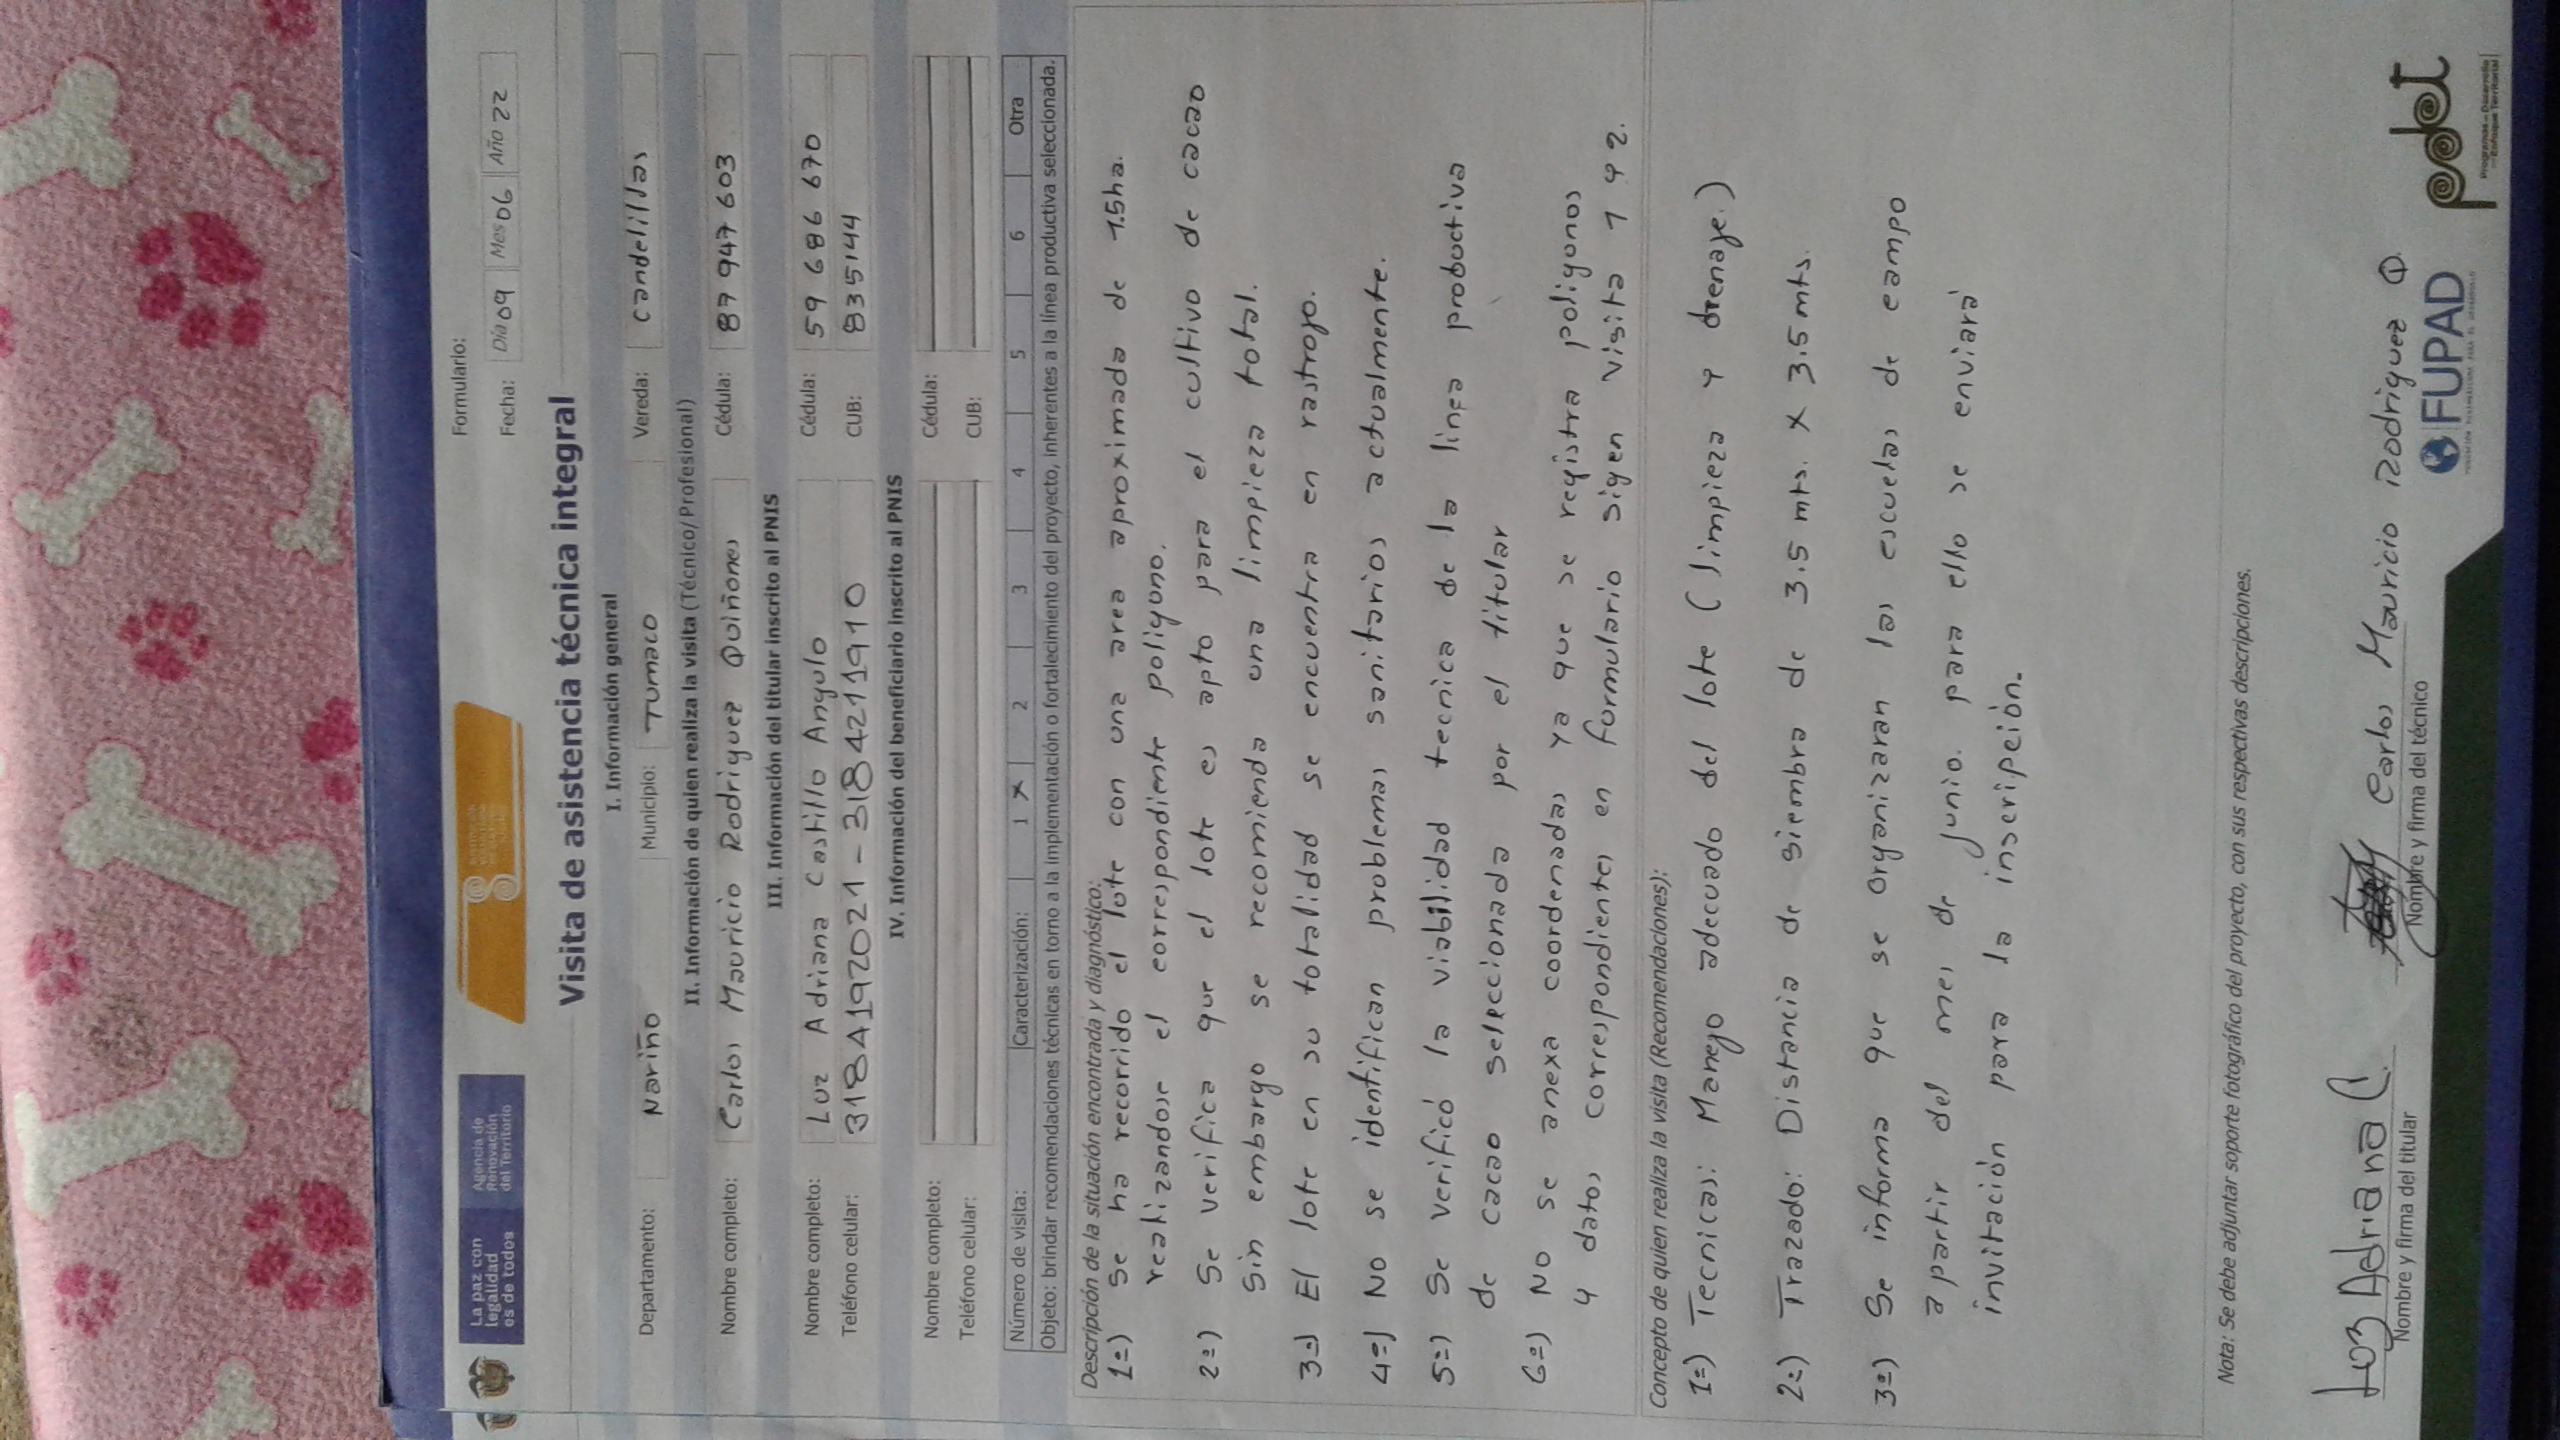 La paz con
legalidad
es de todos
Agencia de
Renovación
del Territorio
Formulario:
Fecha: Día 09 Mes 06 Año 22
Visita de asistencia técnica integral
I. Información general
Departamento: Nariño Municipio: Tumaco Vereda: candelillas
II. Información de quien realiza la visita (Técnico/Profesional)
Nombre completo: Carlos Mauricio Rodriguez Quiñones Cédula: 87 947 603
III. Información del titular inscrito al PNIS
Nombre completo: Luz Adriana Castillo Angulo Cédula: 59 686 670
Teléfono celular: 3184197021 - 3184211910 CUB: 8355144
IV. Información del beneficiario inscrito al PNIS
Nombre completo: Cédula:
Teléfono celular: CUB:
Número de visita: Caracterización: 1 X 2 3 4 5 6 Otra
Objeto: brindar recomendaciones técnicas en torno a la implementación o fortalecimiento del proyecto, inherentes a la línea productiva seleccionada.
Descripción de la situación encontrada y diagnóstico:
1=) Se ha recorrido el lote con una area aproximada de 1.5ha.
realizandose el correspondiente poligono.
2=) Se verifica que el lote es apto para el cultivo de cacao
Sin embargo se recomienda una limpieza total.
3=) El lote en su totalidad se encuentra en rastrojo.
4=) No se identifican problemas sanitarios actualmente.
5=) Se verificó la viabilidad tecnica de la linea productiva
de cacao seleccionada por el titular
6=) No se anexa coordenadas ya que se registra poligonos
y datos correspondientes en formulario sigen visita 1 y 2.
Concepto de quien realiza la visita (Recomendaciones):
1=) Tecnicas: Manejo adecuado del lote (limpieza y drenaje.)
2=) Trazado: Distancia de siembra de 3.5 mts. X 3.5 mts.
3=) Se informa que se organizaran las escuelas de campo
a partir del mes de junio. para ello se enviará
invitación para la inscripción.
Nota: Se debe adjuntar soporte fotográfico del proyecto, con sus respectivas descripciones.
Luz Adriana C Carlos Mauricio Rodriguez Q.
Nombre y firma del titular Nombre y firma del técnico
FUPAD
pdet
Programas de Desarrollo
con Enfoque Territorial